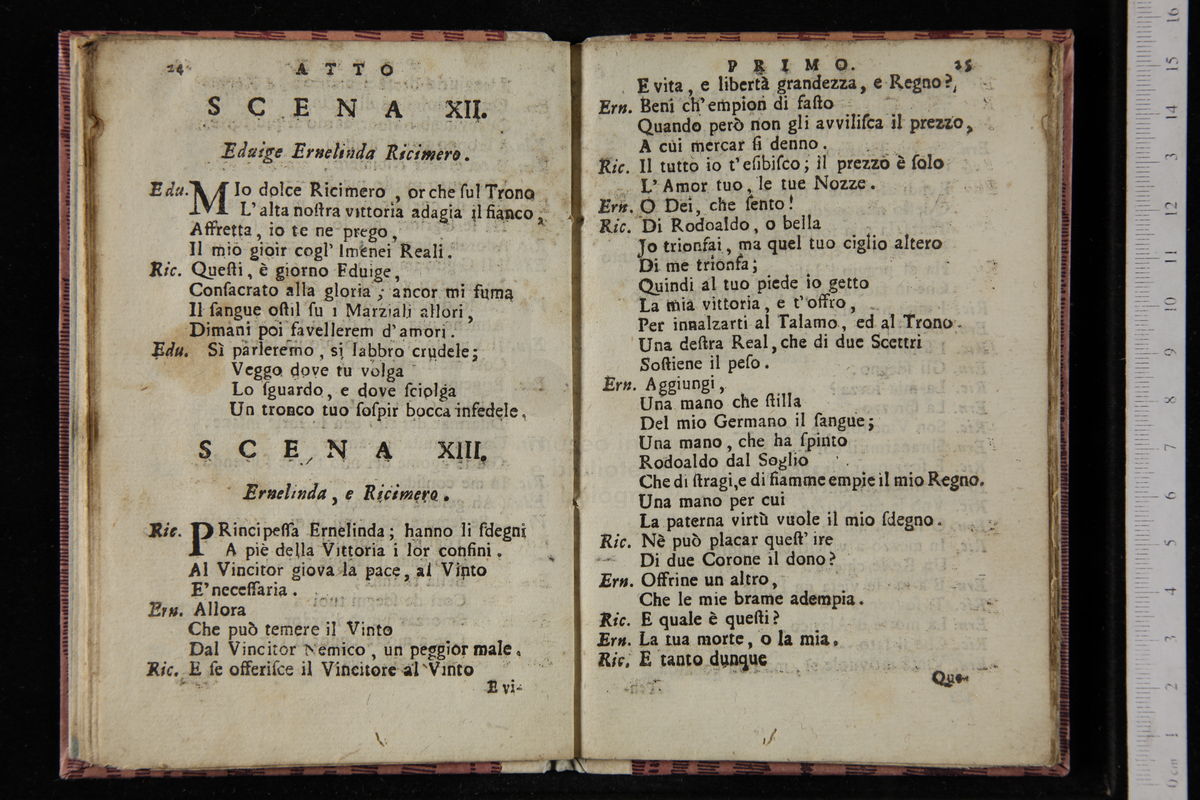 24 ATTO
SCENA XII.
Eduige Ernelinda Ricimero.
Edu. MIo dolce Ricimero, or che ſul Trono
L'alta noſtra vittoria adagia il fianco,
Affretta, io te ne prego,
Il mio gioir cogl' Imenei Reali.
Ric. Queſti, è giorno Eduige,
Conſacrato alla gloria; ancor mi fuma
Il ſangue oſtil ſu i Marziali allori,
Dimani poi favellerem d'amori.
Edu. Sì parleremo, sì labbro crudele;
Veggo dove tu volga
Lo ſguardo, e dove ſciolga
Un tronco tuo ſoſpir bocca infedele.
SCENA XIII.
Ernelinda, e Ricimero.
Ric. PRincipeſſa Ernelinda; hanno li ſdegni
A piè della Vittoria i lor confini.
Al Vincitor giova la pace, al Vinto
E' neceſſaria.
Ern. Allora
Che può temere il Vinto
Dal Vincitor Nemico, un peggior male.
Ric. E ſe offeriſce il Vincitore al Vinto
E vi-
PRIMO. 25
E vita, e libertà grandezza, e Regno?
Ern. Beni ch' empion di faſto
Quando però non gli avviliſca il prezzo,
A cui mercar ſi denno.
Ric. Il tutto io t' eſibiſco; il prezzo è ſolo
L' Amor tuo, le tue Nozze.
Ern. O Dei, che ſento!
Ric. Di Rodoaldo, o bella
Jo trionfai, ma quel tuo ciglio altero
Di me trionfa;
Quindi al tuo piede io getto
La mia vittoria, e t'offro,
Per innalzarti al Talamo, ed al Trono.
Una deſtra Real, che di due Scettri
Soſtiene il peſo.
Ern. Aggiungi,
Una mano che ſtilla
Del mio Germano il ſangue;
Una mano, che ha ſpinto
Rodoaldo dal Soglio
Che di ſtragi, e di fiamme empie il mio Regno.
Una mano per cui
La paterna virtù vuole il mio ſdegno.
Ric. Nè può placar queſt' ire
Di due Corone il dono?
Ern. Offrine un altro,
Che le mie brame adempia.
Ric. E quale è queſti?
Ern. La tua morte, o la mia.
Ric. E tanto dunque
Que-